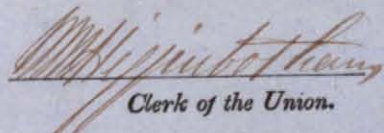 Higginbotham
Clerk of the Union.